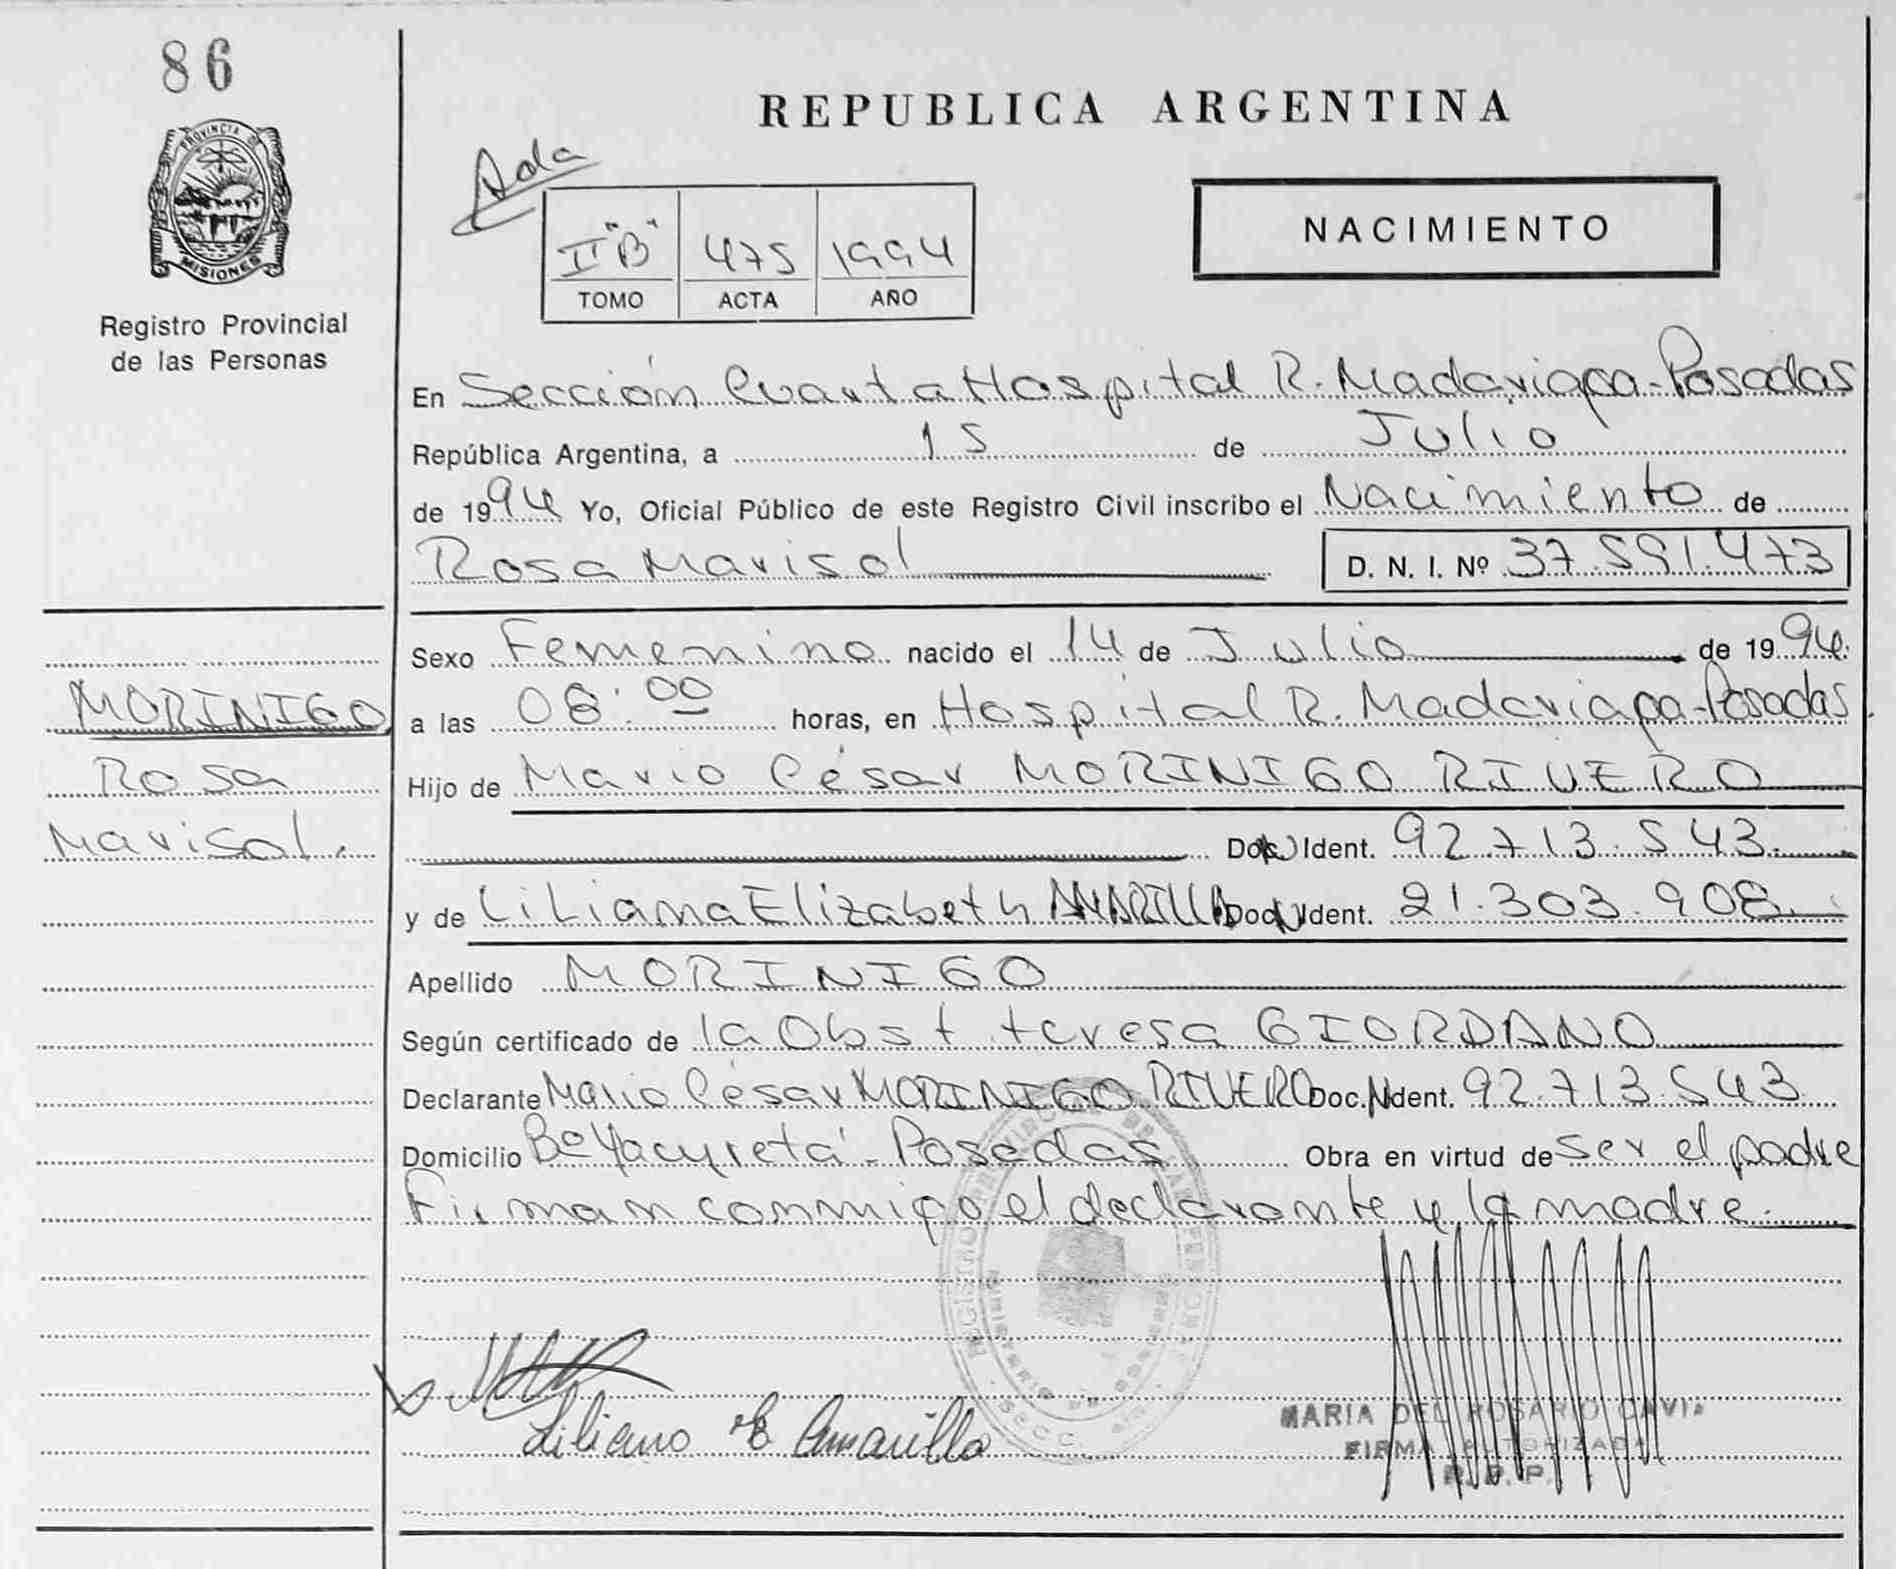 86
PROVINCIA DE
MISIONES
Registro Provincial
de las Personas
REPUBLICA ARGENTINA
Ada
NACIMIENTO
II "B" 475 1994
TOMO ACTA AÑO
En Sección Cuarta Hospital R. Madariaga - Posadas
República Argentina, a 15 de Julio
de 1994 Yo, Oficial Público de este Registro Civil inscribo el Nacimiento de
Rosa Marisol D. N. I. Nº 37.591.473
Sexo Femenino nacido el 14 de Julio de 1994.
MORINIGO
a las 08:00 horas, en Hospital R. Madariaga - Posadas.
Rosa
Hijo de Mario César MORINIGO RIVERO
Marisol.
Ident. 92.713.543.
y de Liliana Elizabeth AMARILLA Doc. Ident. 21.303.908.
Apellido MORINIGO
Según certificado de la Obst Teresa GIORDANO
Declarante Mario César MORINIGO RIVERO Doc. Ident. 92.713.543
Domicilio Bº Yacyretá - Posadas Obra en virtud de ser el padre
Firman conmigo el declarante y la madre.
Liliana E Amarilla
MARIA DEL ROSARIO GAVI
FIRMA AUTORIZADA
R. P. P.